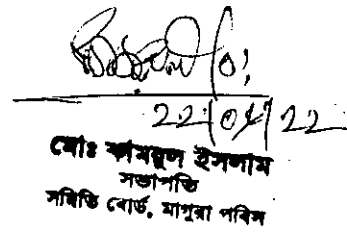 22/04/22
মোঃ কামরুল ইসলাম
সভাপতি
সমিতি বোর্ড, মাগুরা পবিস